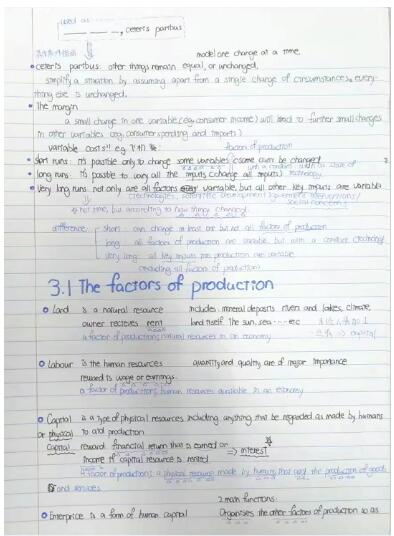 used as
— — —, ceteris paribus
model one change at a time.
ceteris paribus: other things remain equal, or unchanged,
simplify a situation by assuming apart from a single change of circumstances, every-
thing else is unchanged.
The margin
a small change in one variable (eg. consumer income) will lead to further small changes
in other variables (eg. consumer spending and imports)
variable costs
factor of production
short runs: it's possible only to change some variables
long runs: it's possible to vary all the inputs (change all inputs) technology
Very long runs not only are all factors variable, but all other key inputs are variable
Not time, but according to how things changed.
difference: short: can change at least one but not all factor of production
long: all factors of production are variable but with a constant
very long: all key inputs into production are variable
(including all factor of production)
3.1 The factors of production
Land is a natural resource includes: mineral deposits river and lakes, climate,
owner recieves rent land itself the sun, sea ... etc
a factor of production; natural resources in an economy
Labour is the human resources quantity and quality are of major importance
reward is wage or earnings.
a factor of production; human resources available in an economy
Capital is a type of physical resources including anything that be regarded as made by humans
or physical to aid production
capital reward: financial return that is earned or ⇒ interest
income if capital resource is rented
a factor of production; a physical resource made by humans that aid the production of goods
and services
2 main functions:
Enterprise is a form of human capital Organises the other factors of production so as